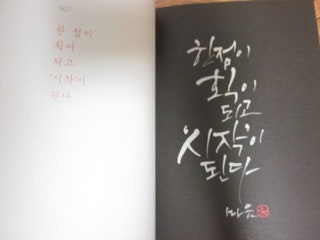 007
한 점이
획이
되고
'시작'이
된다
한 점이
획이
되고
'시작'이
된다
마음